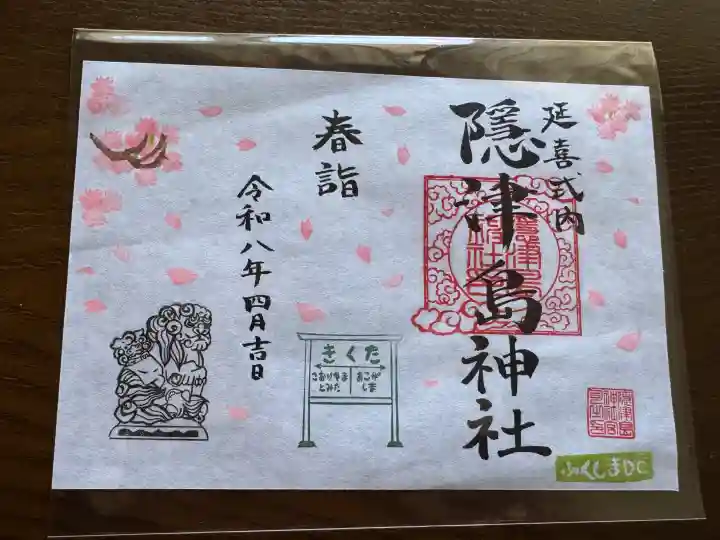 延喜式内
隠津島神社
春詣
令和八年四月吉日
きくた
こおりやまとみた
あこがしま
ふくしまDC